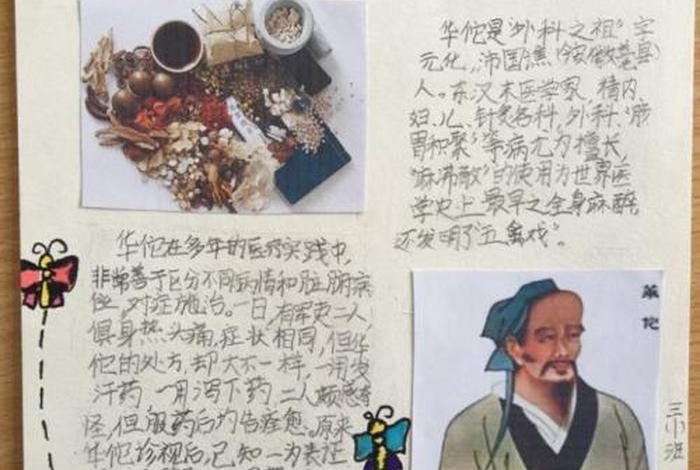 华佗是"外科之祖"字
元化,沛国谯(今安徽亳县)
人。东汉末医学家,精内、
妇、儿、针灸各科,外科,"肠
胃积聚"等病尤为擅长,
"麻沸散"的使用为世界医
学史上最早之全身麻醉,
还发明了"五禽戏"。
华佗在多年的医疗实践中,
非常善于区分不同病情和脏腑病
位,对症施治。一日,有军吏二人,
俱身热头痛,症状相同,但华
佗的处方,却大不一样,一用发
汗药,一用泻下药,二人颇感奇
怪,但服药后均告痊愈。原来
华佗诊视后,已知一为表证
华佗
三小班